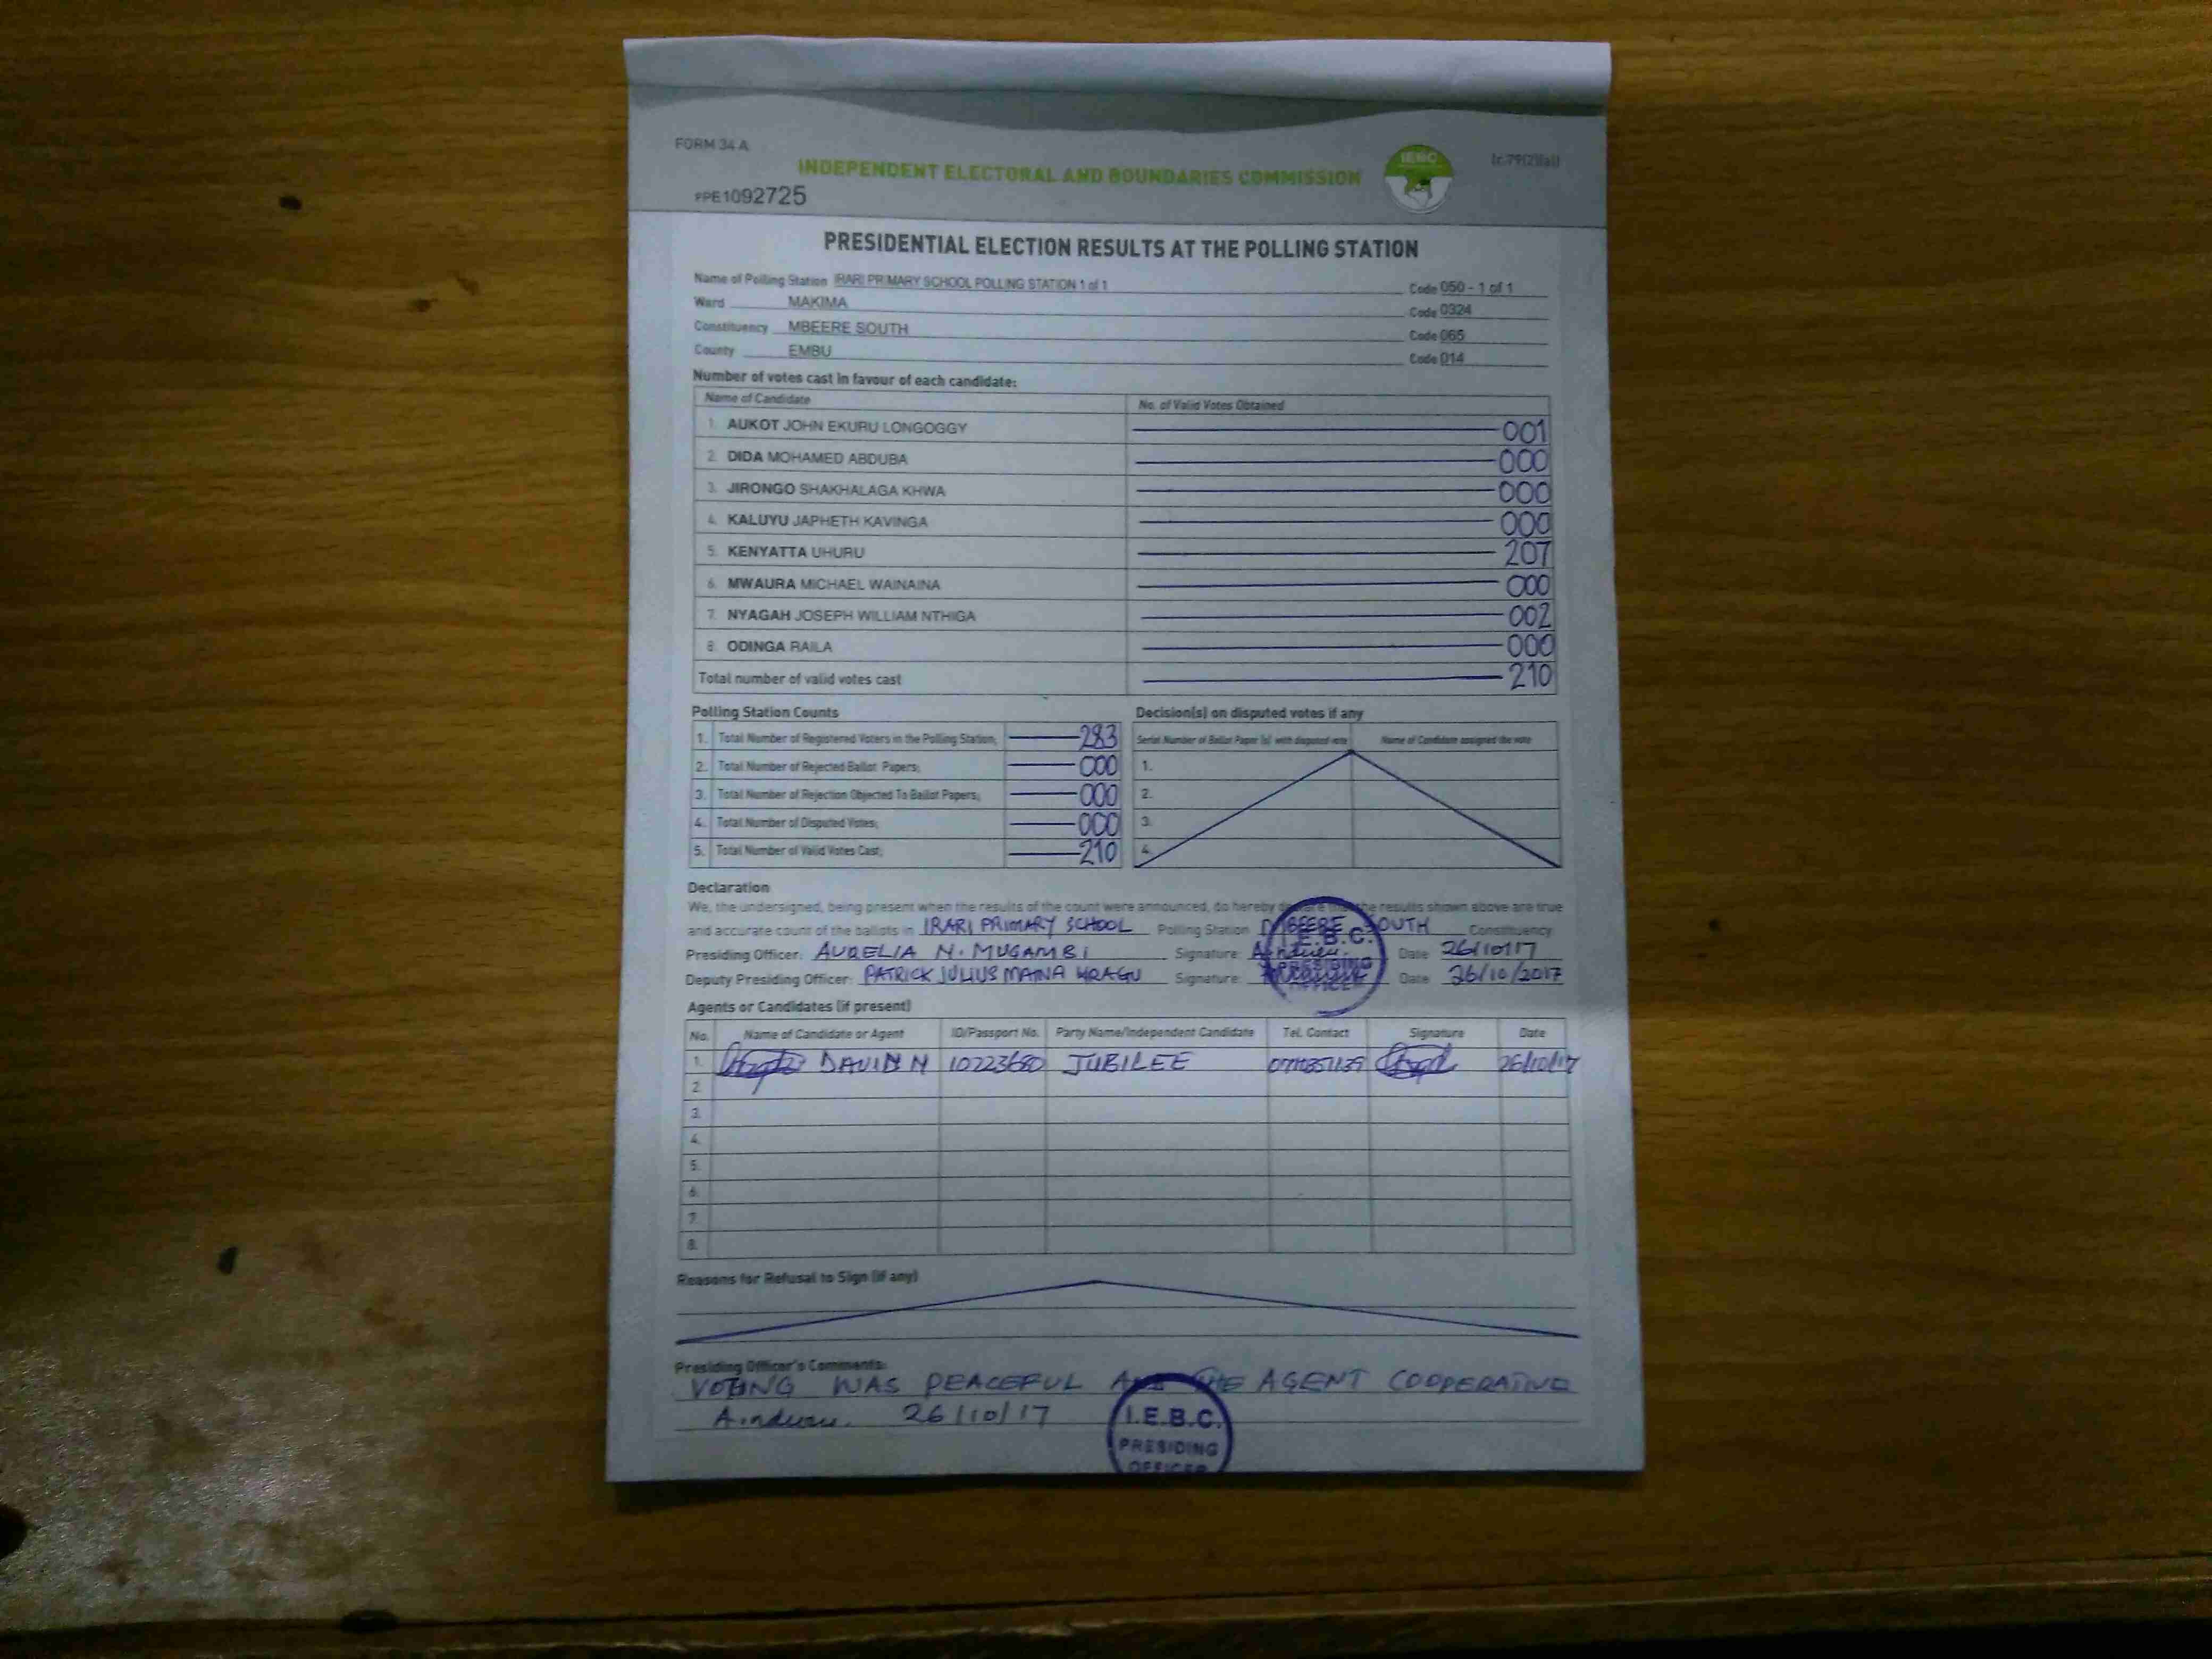 FORM 34 A
(r.79(2)(a))
INDEPENDENT ELECTORAL AND BOUNDARIES COMMISSION
IEBC
PPE1092725
PRESIDENTIAL ELECTION RESULTS AT THE POLLING STATION
Name of Polling Station IRARI PRIMARY SCHOOL POLLING STATION 1 of 1 Code 050 - 1 of 1
Ward MAKIMA Code 0324
Constituency MBEERE SOUTH Code 065
County EMBU Code 014
Number of votes cast in favour of each candidate:
Name of Candidate No. of Valid Votes Obtained
1. AUKOT JOHN EKURU LONGOGGY 001
2. DIDA MOHAMED ABDUBA 000
3. JIRONGO SHAKHALAGA KHWA 000
4. KALUYU JAPHETH KAVINGA 000
5. KENYATTA UHURU 207
6. MWAURA MICHAEL WAINAINA 000
7. NYAGAH JOSEPH WILLIAM NTHIGA 002
8. ODINGA RAILA 000
Total number of valid votes cast 210
Polling Station Counts
1. Total Number of Registered Voters in the Polling Station; 283
2. Total Number of Rejected Ballot Papers; 000
3. Total Number of Rejection Objected To Ballot Papers; 000
4. Total Number of Disputed Votes; 000
5. Total Number of Valid Votes Cast; 210
Decision(s) on disputed votes if any
Serial Number of Ballot Paper (s) with disputed vote Name of Candidate assigned the vote
1.
2.
3.
4.
Declaration
We, the undersigned, being present when the results of the count were announced, do hereby declare that the results shown above are true
and accurate count of the ballots in IRARI PRIMARY SCHOOL Polling Station MBEERE SOUTH Constituency
Presiding Officer: AURELIA N. MUGAMBI Signature: Date 26/10/17
Deputy Presiding Officer: PATRICK JULIUS MAINA Signature: Date 26/10/2017
I.E.B.C.
PRESIDING
OFFICER
Agents or Candidates (if present)
No. Name of Candidate or Agent ID/Passport No. Party Name/Independent Candidate Tel. Contact Signature Date
1. DAVID N 10223680 JUBILEE 26/10/17
2.
3.
4.
5.
6.
7.
8.
Reasons for Refusal to Sign (if any)
Presiding Officer's Comments:
VOTING WAS PEACEFUL AND THE AGENT COOPERATIVE
26/10/17
I.E.B.C.
PRESIDING
OFFICER